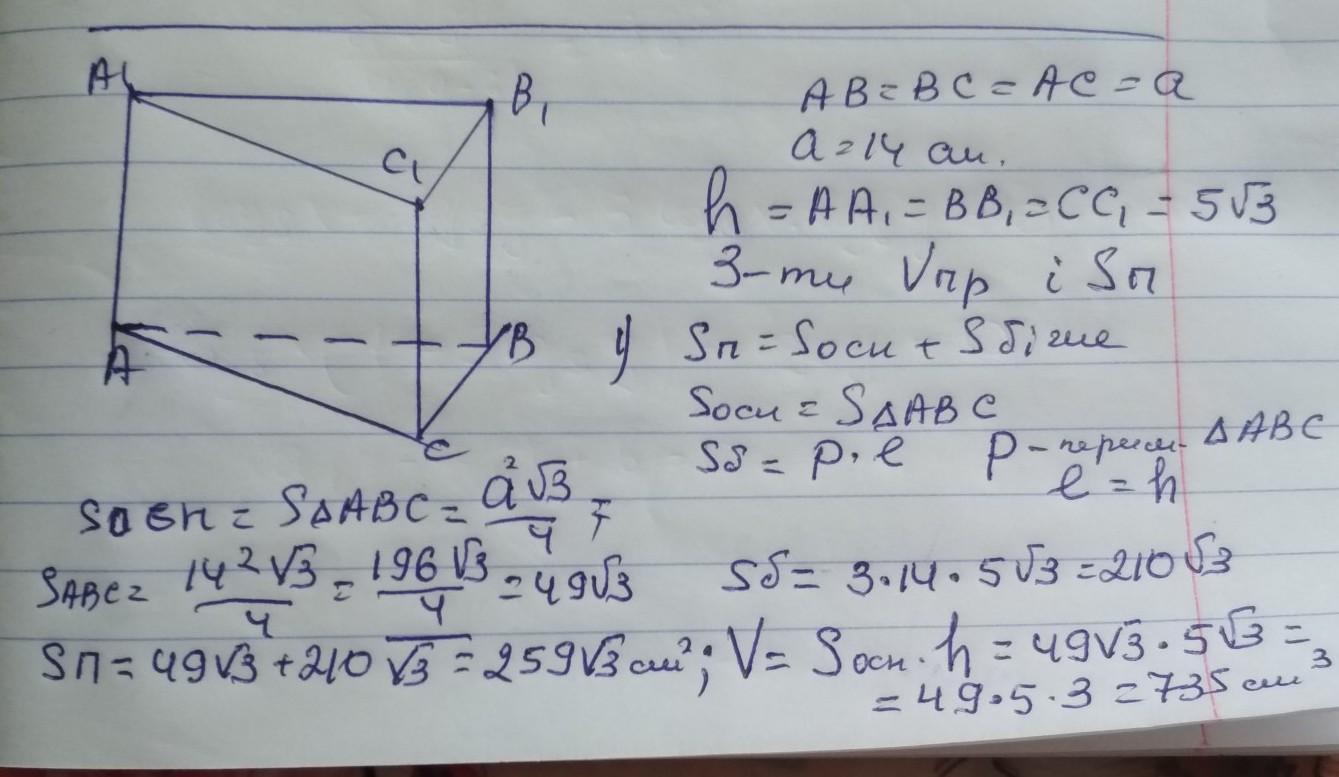 A₁
B₁
C₁
A
B
C
AB = BC = AC = a
a = 14 см.
h = AA₁ = BB₁ = CC₁ = 5√3
З-ти Vпр і Sп
1) Sп = Sосн + Sбічне
Sосн = S△ABC
Sб = P·l P - перим. △ABC
l = h
Sосн = S△ABC = a²√3/4 =
SABC = 14²√3/4 = 196√3/4 = 49√3 Sб = 3·14·5√3 = 210√3
Sп = 49√3 + 210√3 = 259√3 см²; V = Sосн·h = 49√3·5√3 =
= 49·5·3 = 735 см³